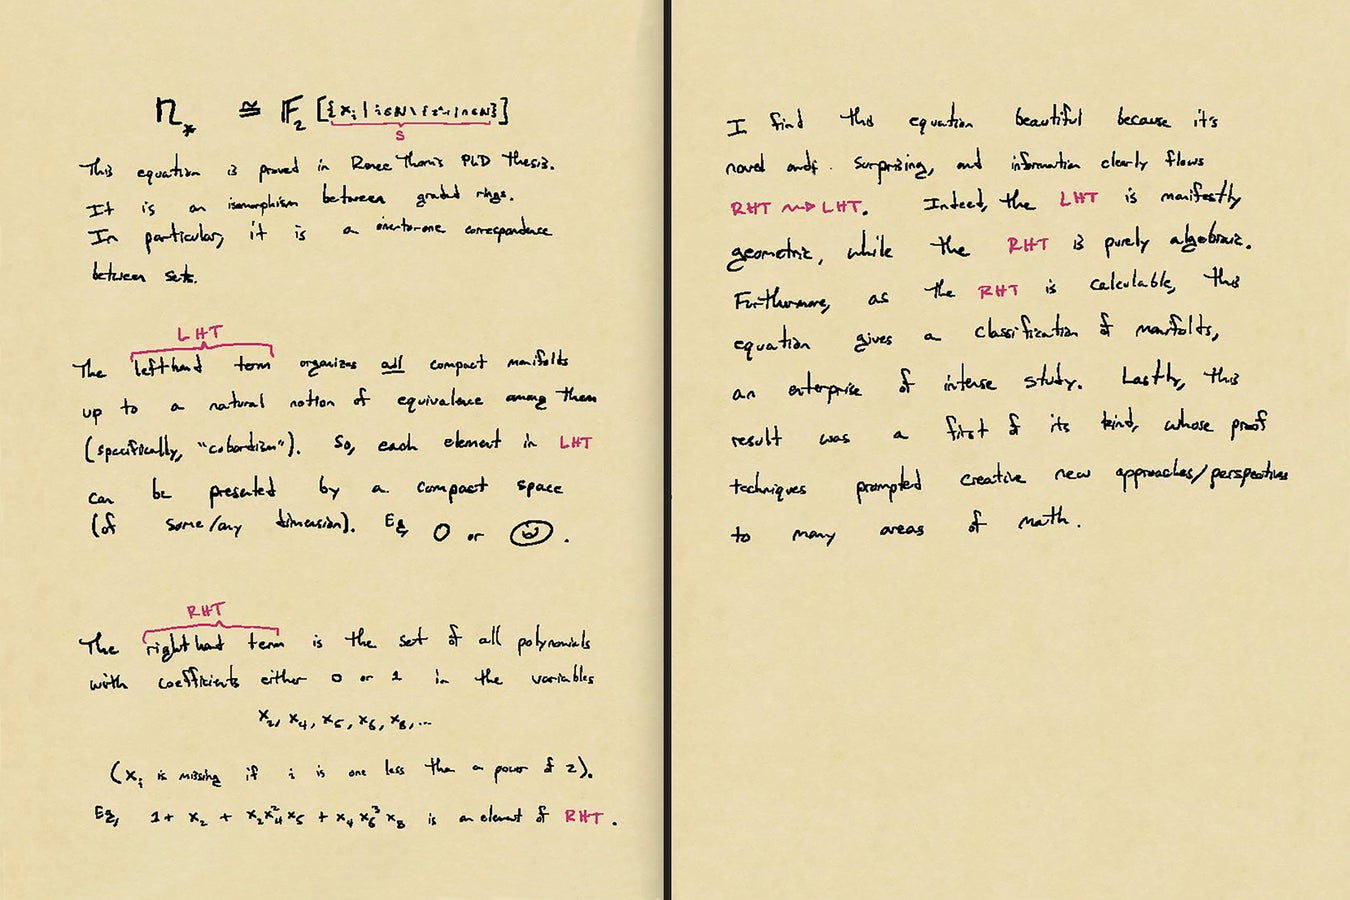 𝔑_* ≅ 𝔽_2 [{x_i | i ∈ ℕ \ {2^n-1 | n ∈ ℕ}}]
S
This equation is proved in Renee Thom's PhD thesis.
It is an isomorphism between graded rings.
In particular, it is a one-to-one correspondence
between sets.
LHT
The lefthand term organizes all compact manifolds
up to a natural notion of equivalence among them
(specifically, "cobordism"). So, each element in LHT
can be presented by a compact space
(of some/any dimension). Eg, O or .
RHT
The righthand term is the set of all polynomials
with coefficients either 0 or 1 in the variables
x_2, x_4, x_5, x_6, x_8, ...
(x_i is missing if i is one less than a power of 2).
Eg, 1 + x_2 + x_2x_4^2x_5 + x_4x_6^3x_8 is an element of RHT.
I find this equation beautiful because it's
novel and surprising, and information clearly flows
RHT ⇝ LHT. Indeed, the LHT is manifestly
geometric, while the RHT is purely algebraic.
Furthermore, as the RHT is calculable, this
equation gives a classification of manifolds,
an enterprise of intense study. Lastly, this
result was a first of its kind, whose proof
techniques prompted creative new approaches/perspectives
to many areas of math.